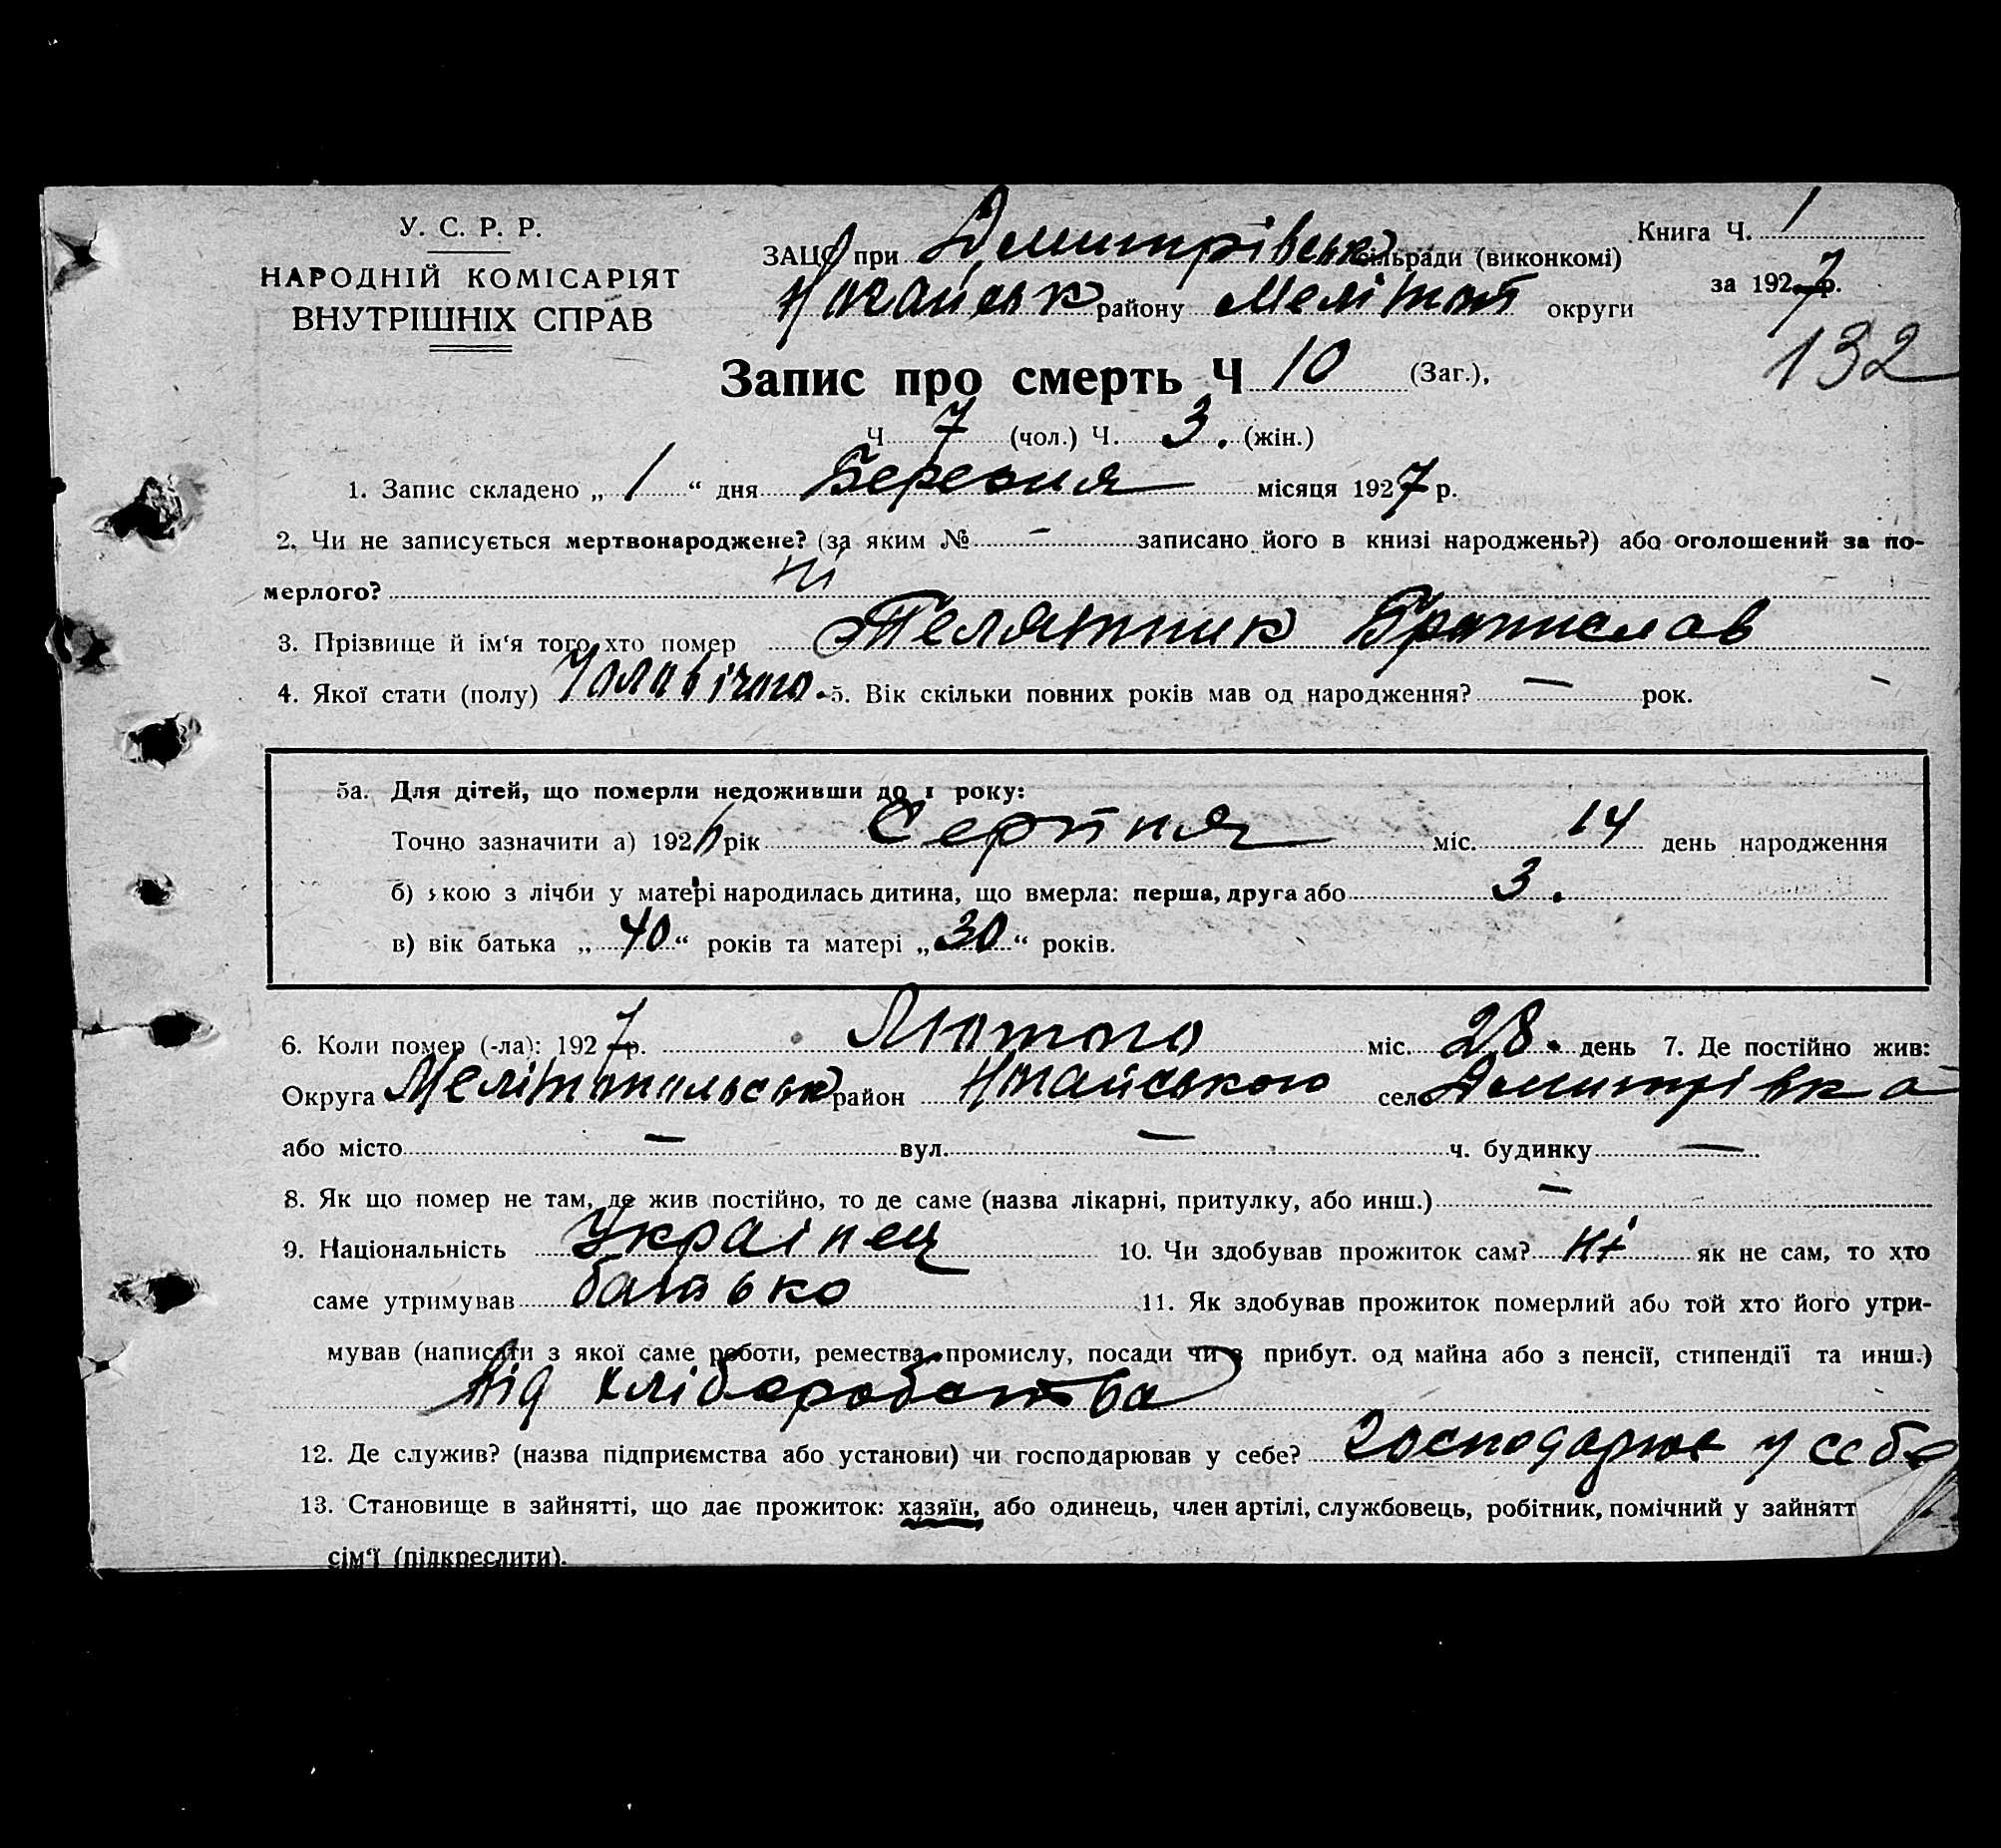 У. С. Р. Р.
НАРОДНІЙ КОМІСАРІЯТ
ВНУТРІШНІХ СПРАВ
ЗАЦС при Дмитрівськ сільради (виконкомі)
Ногайськ району Меліт округи
Книга Ч. 1
за 1927 р.
132
Запис про смерть Ч 10 (Заг.),
Ч 7 (чол.) Ч. 3. (жін.)
1. Запис складено „ 1 “ дня Березня місяця 1927 р.
2. Чи не записується мертвонароджене? (за яким № - записано його в книзі народжень?) або оголошений за по-
мерлого? ні
3. Прізвище й ім‘я того хто помер Телятник Братислав
4. Якої стати (полу) Чоловічого. 5. Вік скільки повних років мав од народження? — рок.
5а. Для дітей, що померли недоживши до 1 року:
Точно зазначити а) 1926 рік Серпня міс. 14 день народження
б) якою з лічби у матері народилась дитина, що вмерла: перша, друга або 3.
в) вік батька „ 40 “ років та матері „ 30 “ років.
6. Коли помер (-ла): 1927 р. Лютого міс. 28. день 7. Де постійно жив:
Округа Мелітопольськ район Ногайського село Дмитрівка
або місто — вул. — ч. будинку —
8. Як що помер не там, де жив постійно, то де саме (назва лікарні, притулку, або инш.) —
9. Національність Українец 10. Чи здобував прожиток сам? ні як не сам, то хто
саме утримував батько 11. Як здобував прожиток померлий або той хто його утри-
мував (написати з якої саме роботи, ремества, промислу, посади чи з прибут. од майна або з пенсії, стипендії та инш.)
Від хліборобства
12. Де служив? (назва підприємства або установи) чи господарював у себе? Господарює у себе
13. Становище в зайнятті, що дає прожиток: хазяїн, або одинець, член артілі, службовець, робітник, помічний у зайнятт
сім‘ї (підкреслити).